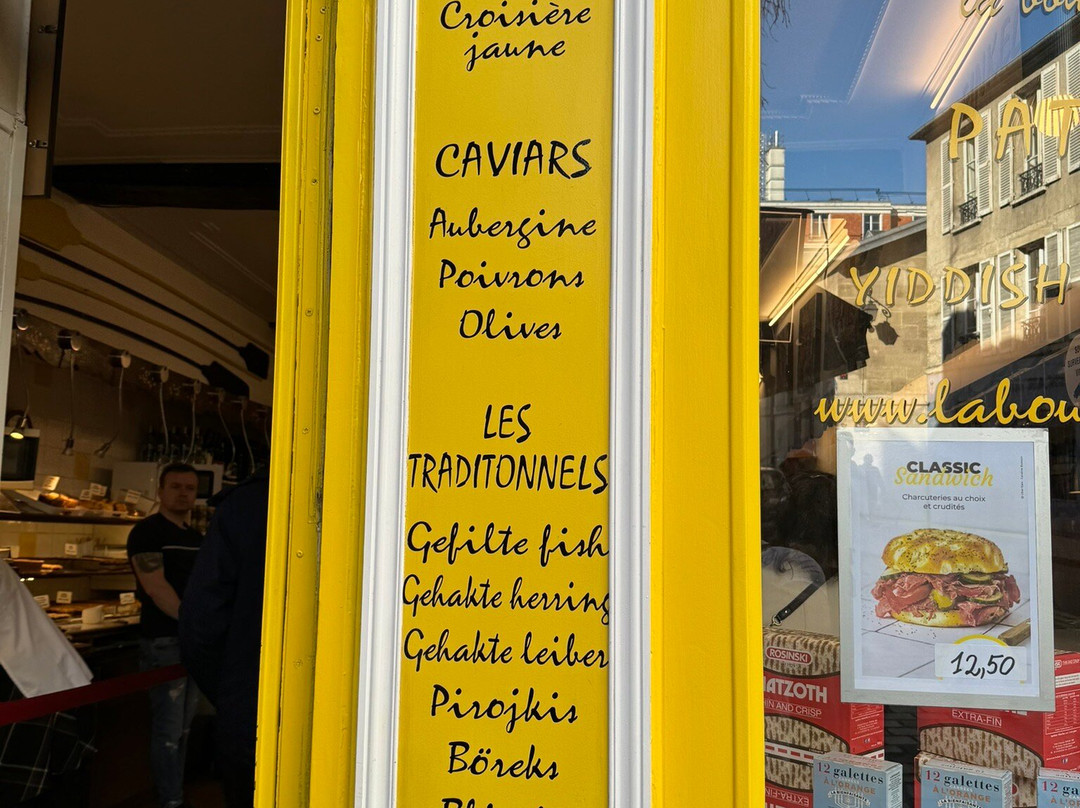 Croisière
jaune
CAVIARS
Aubergine
Poivrons
Olives
LES
TRADITONNELS
Gefilte fish
Gehakte herring
Gehakte leiber
Pirojkis
Böreks
YIDDISH
www.labou
CLASSIC
Sandwich
Charcuteries au choix
et crudités
12,50
ROSINSKI
ATZOTH
HIN AND CRISP
EXTRA-FIN
EXTRA-FIN
12 galettes
À L'ORANGE
12 galettes
À L'ORANGE
12 ga